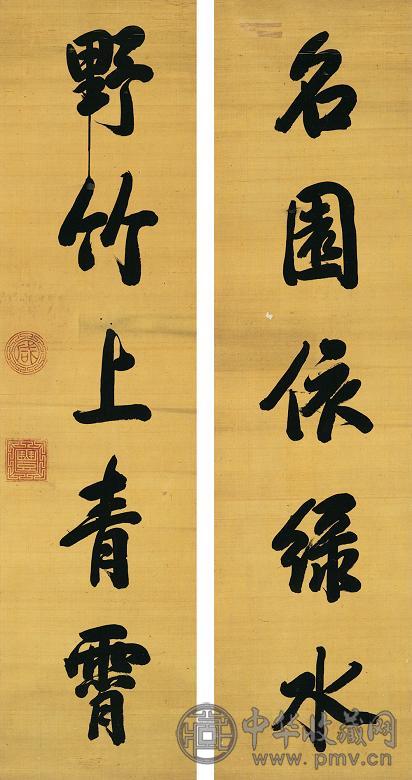 名园依绿水
野竹上青霄
咸
豐
中华收藏网
www.pmv.cn